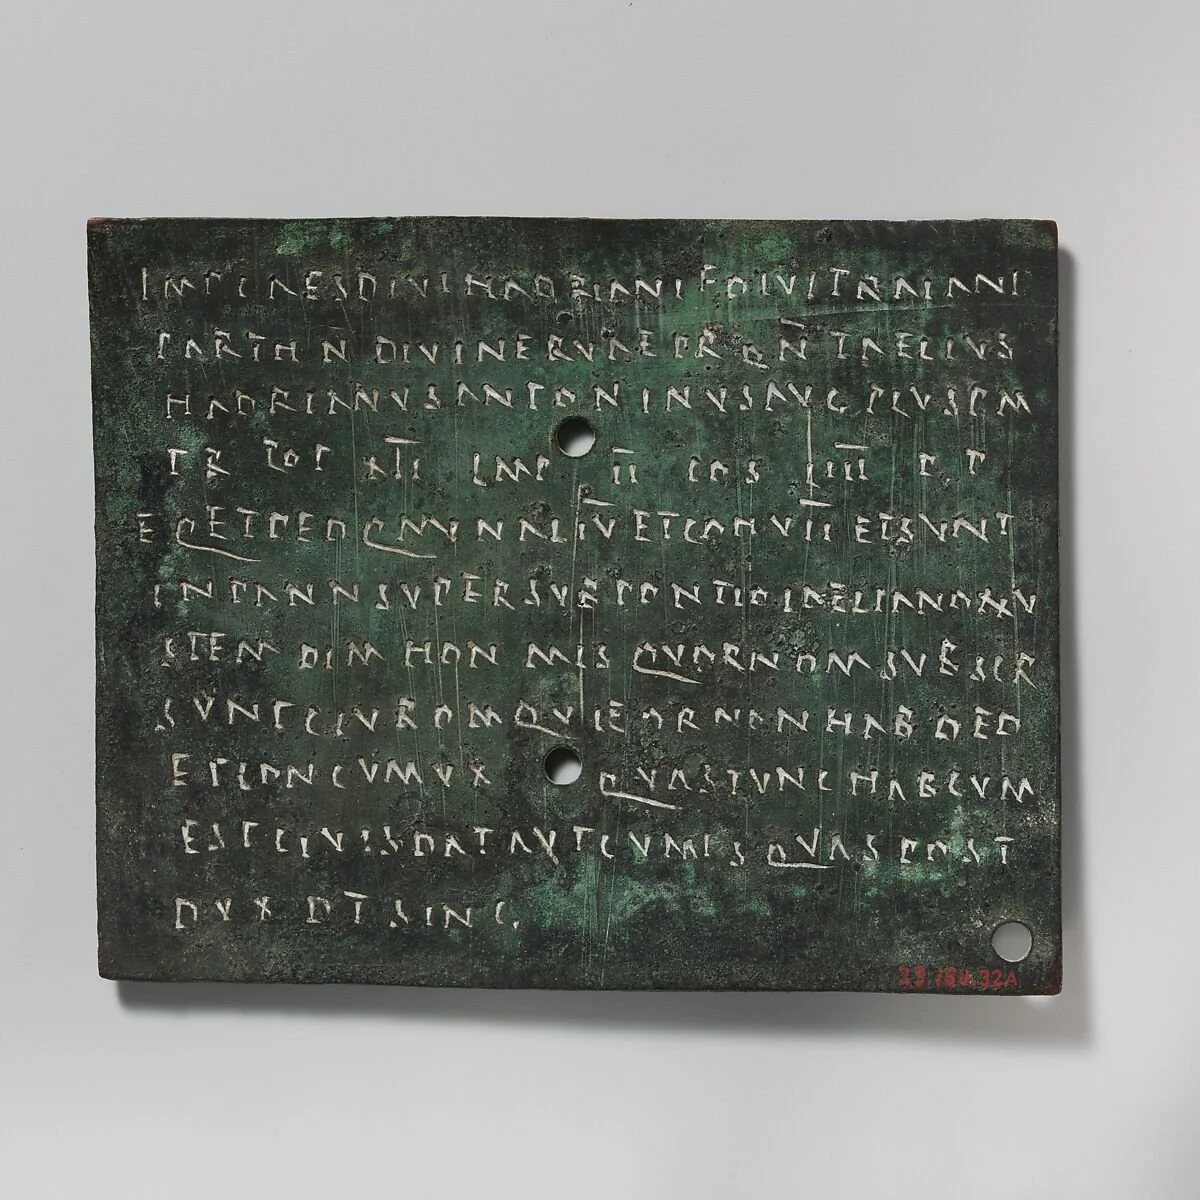 IMP CAES DIVI HADRIANI F DIVI TRAIANI
PARTH N DIVI NERVAE PR ON T AELIVS
HADRIANVS ANTONINVS AVG PIVS P M
TR POT XII IMP II COS IIII P P
EQ ET PED Q M IN AL IV ET COH VII ET SVNT
IN PANN SVPER SVB PONTIO LAELIANO XXV
STEM DIM HON MIS QVOR NOM SVBSCR
SVNT CIV ROM QVI EOR NON HAB DED
ET CON CVM VX QVAS TVNC HAB CVM
EST CIV IS DAT AVT CVM IS QVAS POST
DVX DT SING
23.160.32A